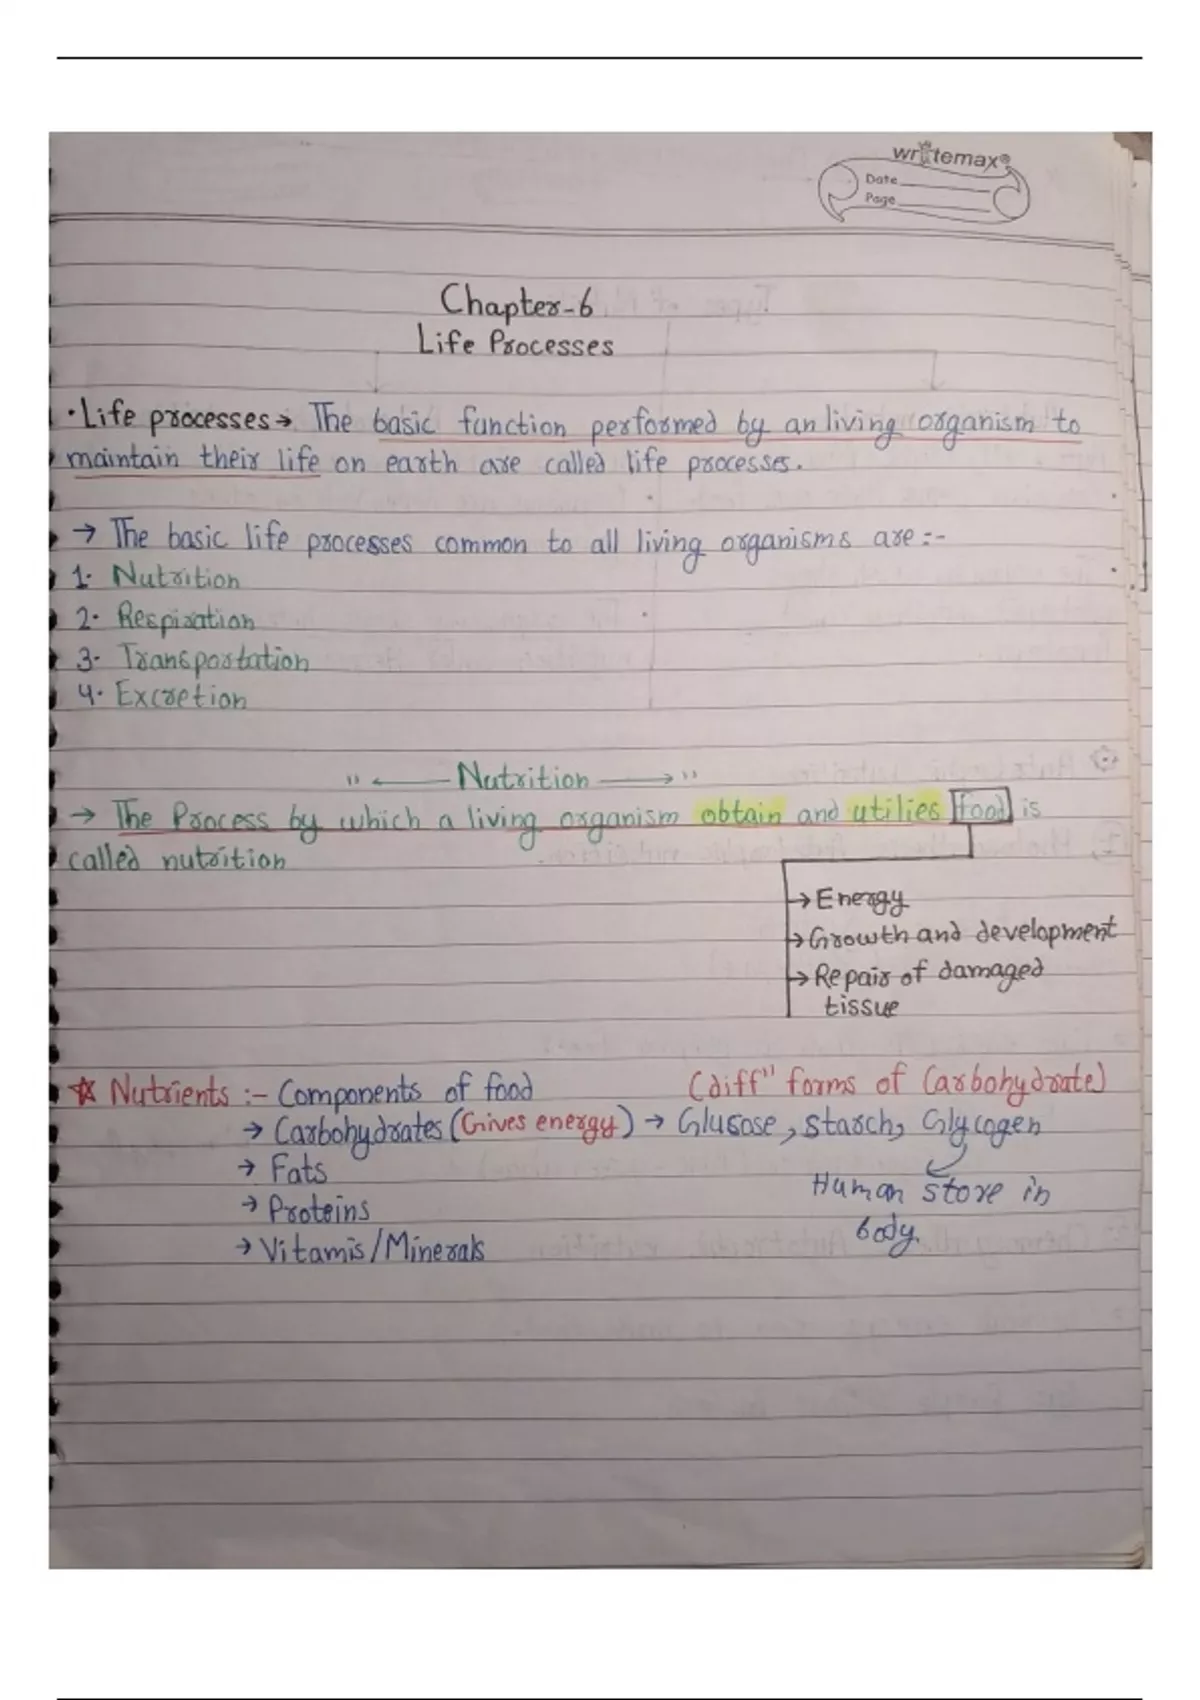 writemax®
Date
Page
Chapter-6
Life Processes
• Life processes → The basic function performed by an living organism to
maintain their life on earth are called life processes.
→ The basic life processes common to all living organisms are :-
1. Nutrition
2. Respiration
3. Transportation
4. Excretion
" ← Nutrition → "
→ The Process by which a living organism obtain and utilies food is
called nutrition
→ Energy
→ Growth and development
→ Repair of damaged
tissue
☆ Nutrients :- Components of food (diff" forms of Carbohydrate)
→ Carbohydrates (Gives energy) → Glusose, starch, Glycogen
→ Fats
Human store in
→ Proteins
body.
→ Vitamis/Minerals